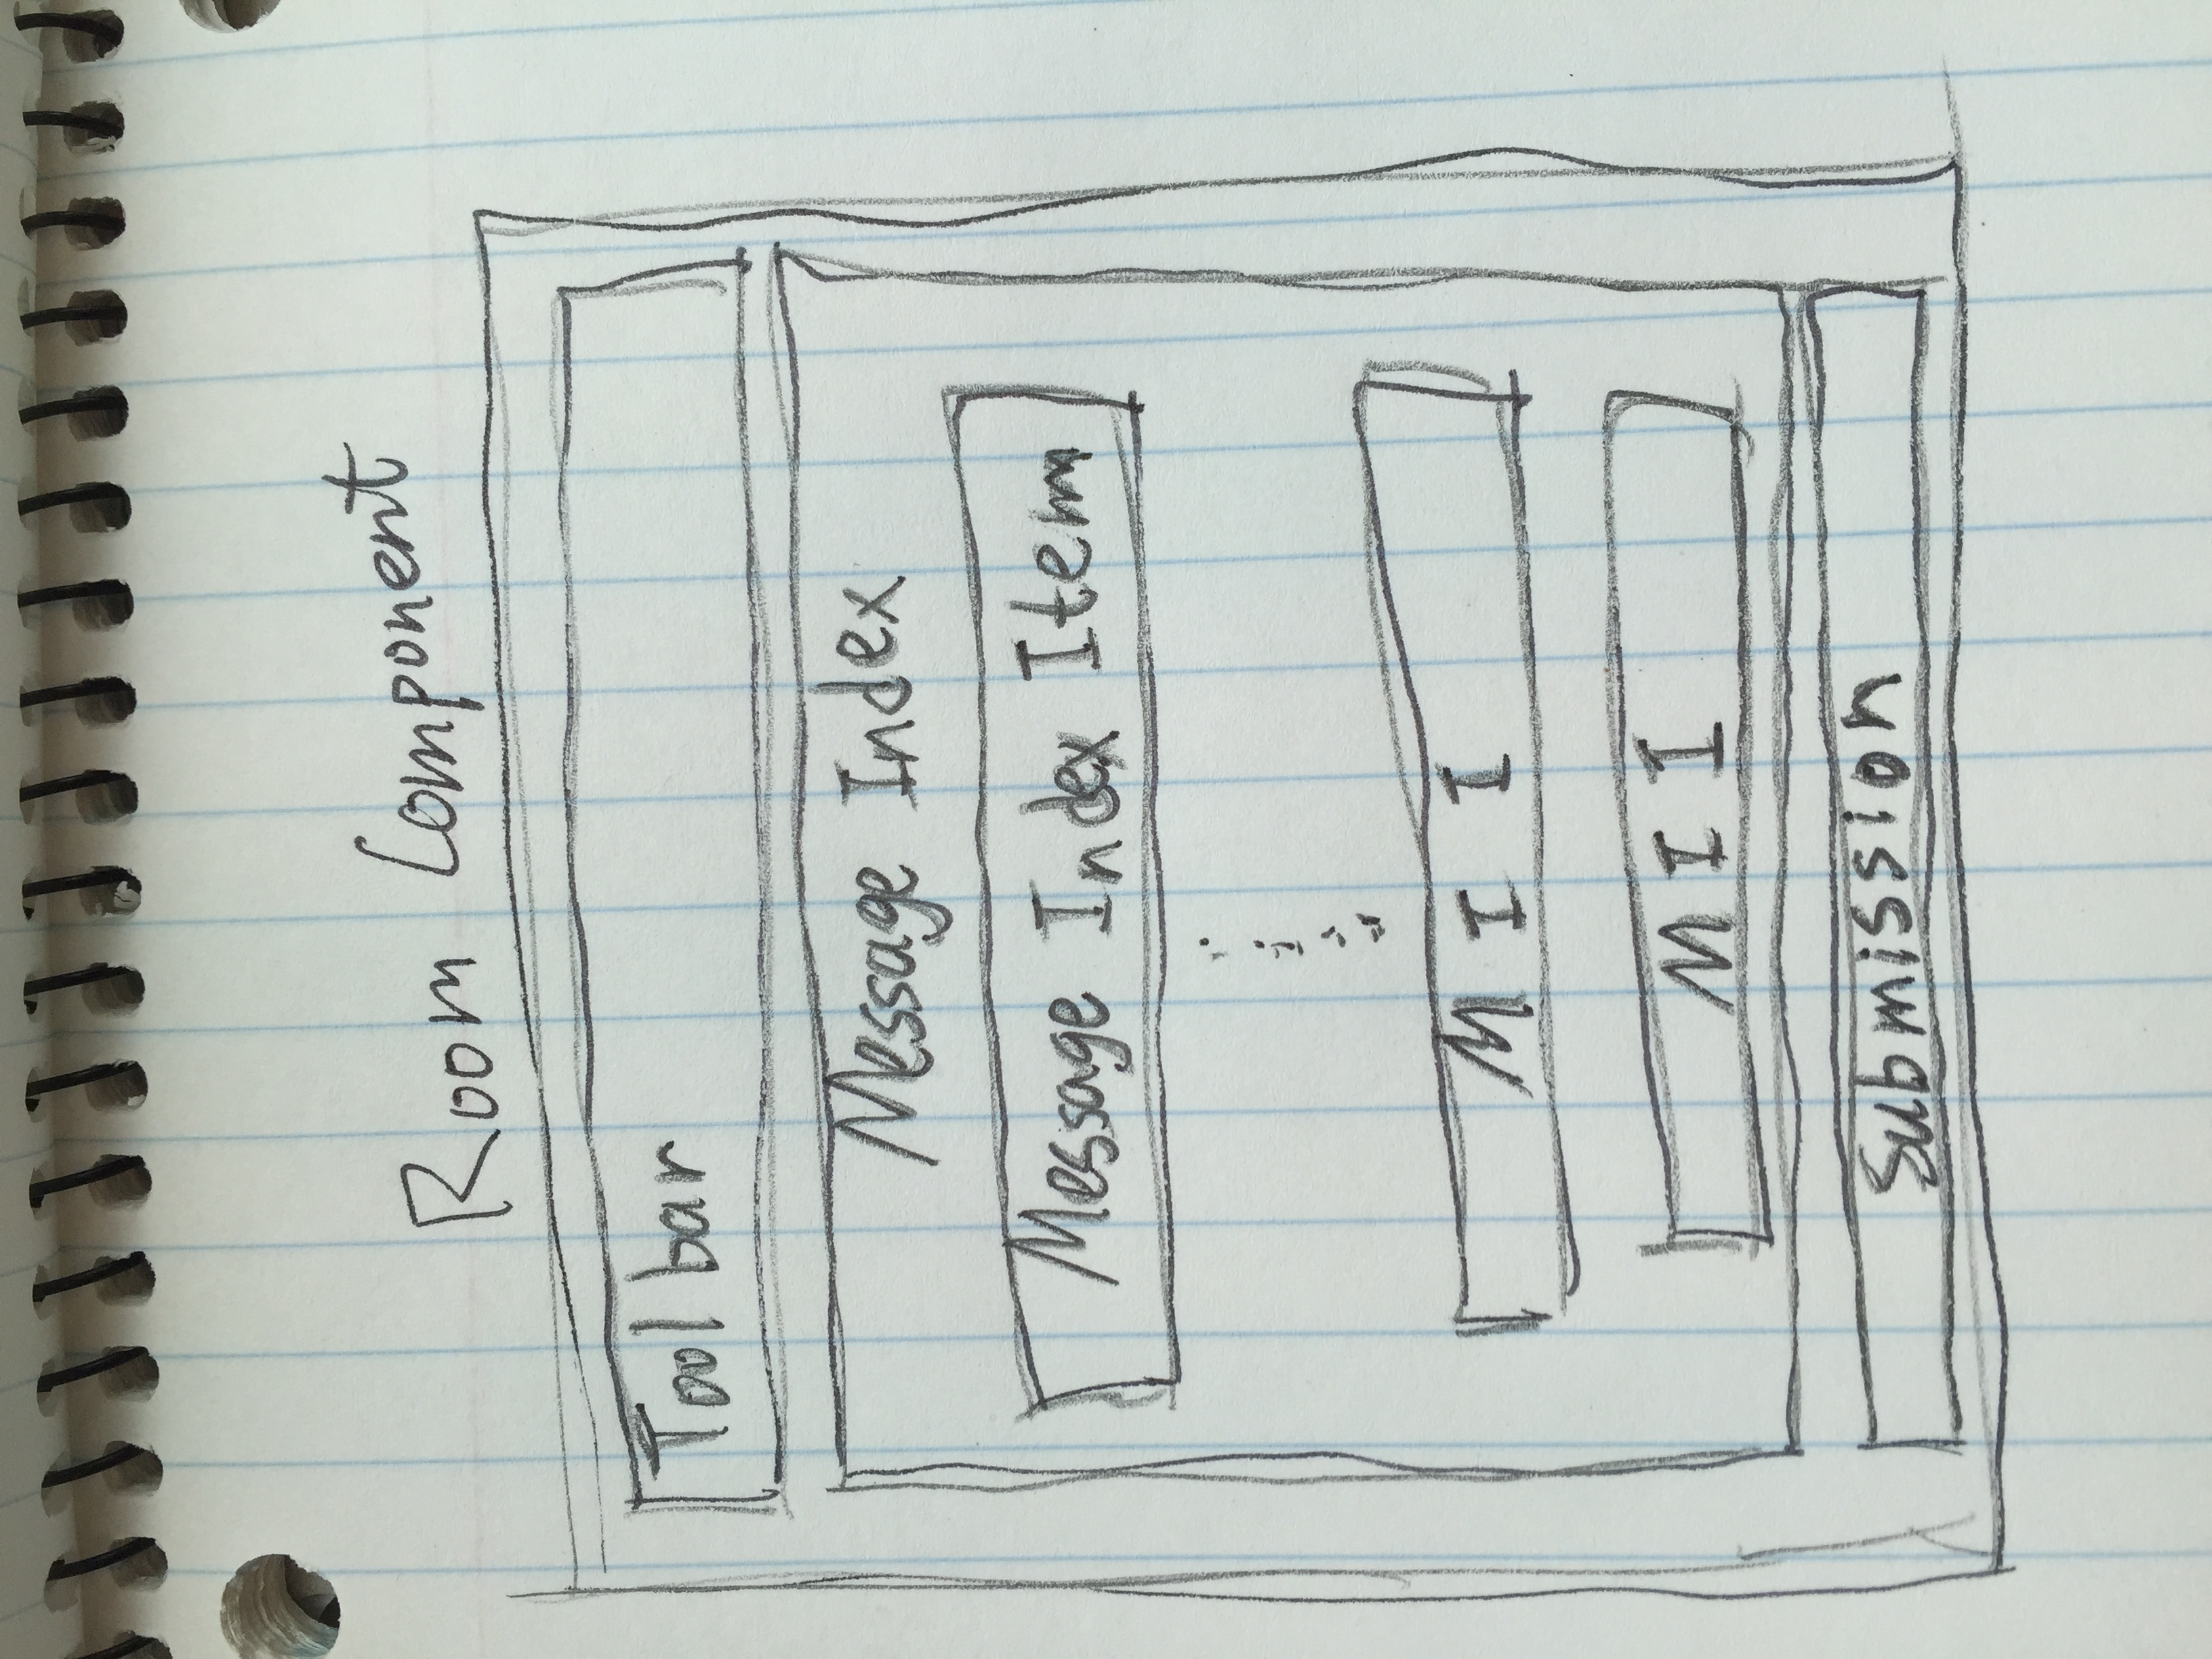 Room Component
Tool bar
Message Index
Message Index Item
M I I
M I I
Submission